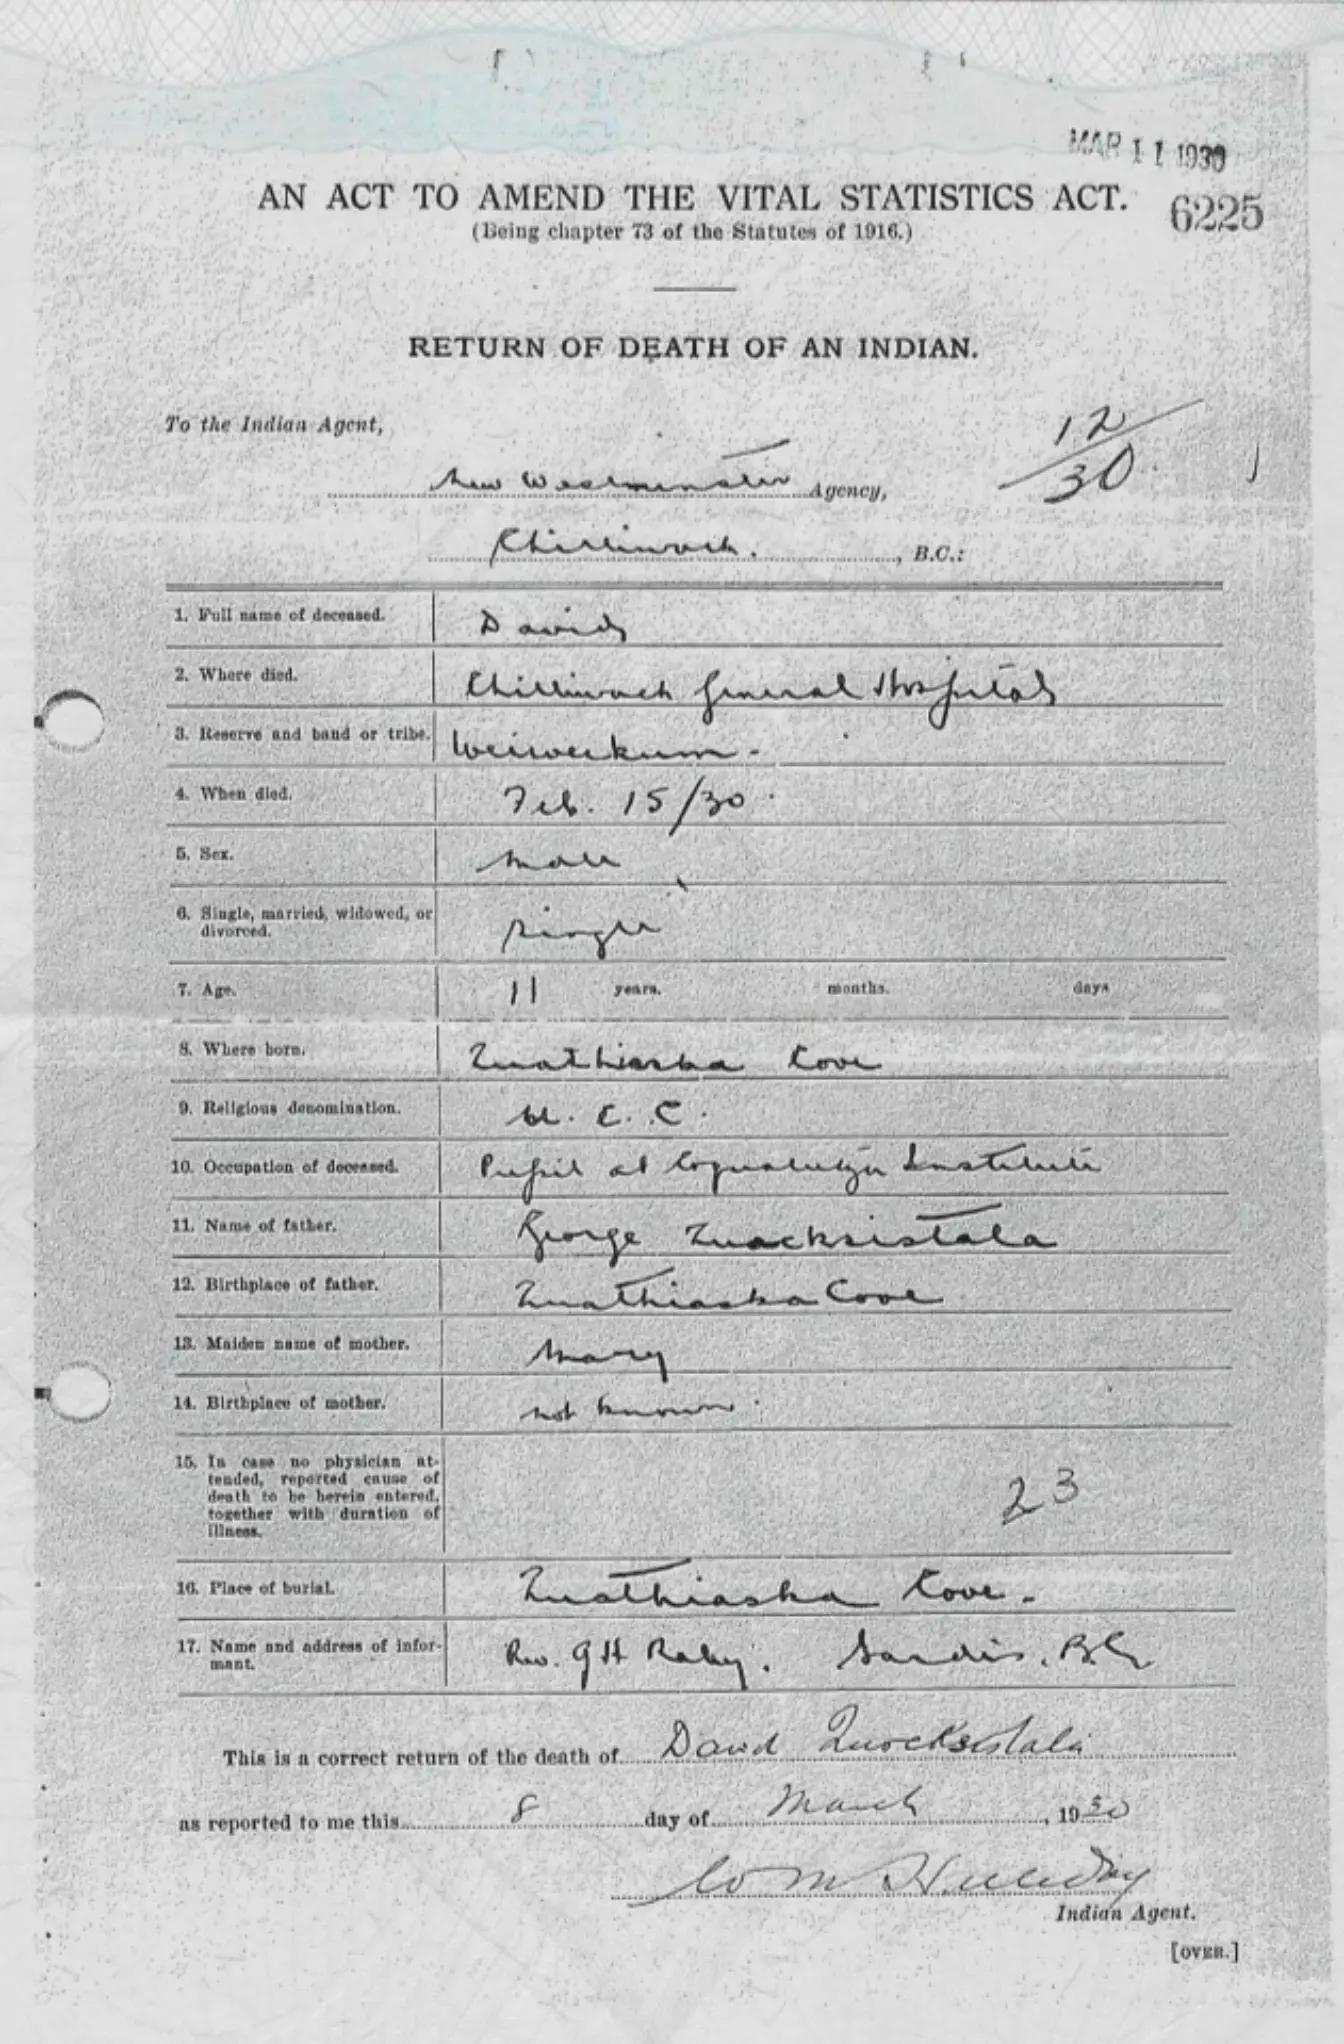 MAR 11 1930
AN ACT TO AMEND THE VITAL STATISTICS ACT.
6225
(Being chapter 73 of the Statutes of 1916.)
RETURN OF DEATH OF AN INDIAN.
To the Indian Agent,
12/30
New Westminster Agency,
Chilliwack. , B.C.:
1. Full name of deceased. David
2. Where died. Chilliwack General Hospital
3. Reserve and band or tribe. Weiweekum -
4. When died. Feb. 15/30.
5. Sex. Male
6. Single, married, widowed, or divorced. Single
7. Age. 11 years. months. days
8. Where born. Quathiaska Cove
9. Religious denomination. U. C. C.
10. Occupation of deceased. Pupil at Coqualeetza Institute
11. Name of father. George Quacksistala
12. Birthplace of father. Quathiaska Cove
13. Maiden name of mother. Mary
14. Birthplace of mother. not known.
15. In case no physician at-
tended, reported cause of
death to be herein entered,
together with duration of
illness.
23
16. Place of burial. Quathiaska Cove.
17. Name and address of infor-
mant. Rev. G H Raley. Sardis. B.C.
This is a correct return of the death of David Quocksistala
as reported to me this 8 day of March , 1930
W M Halliday
Indian Agent.
[OVER.]